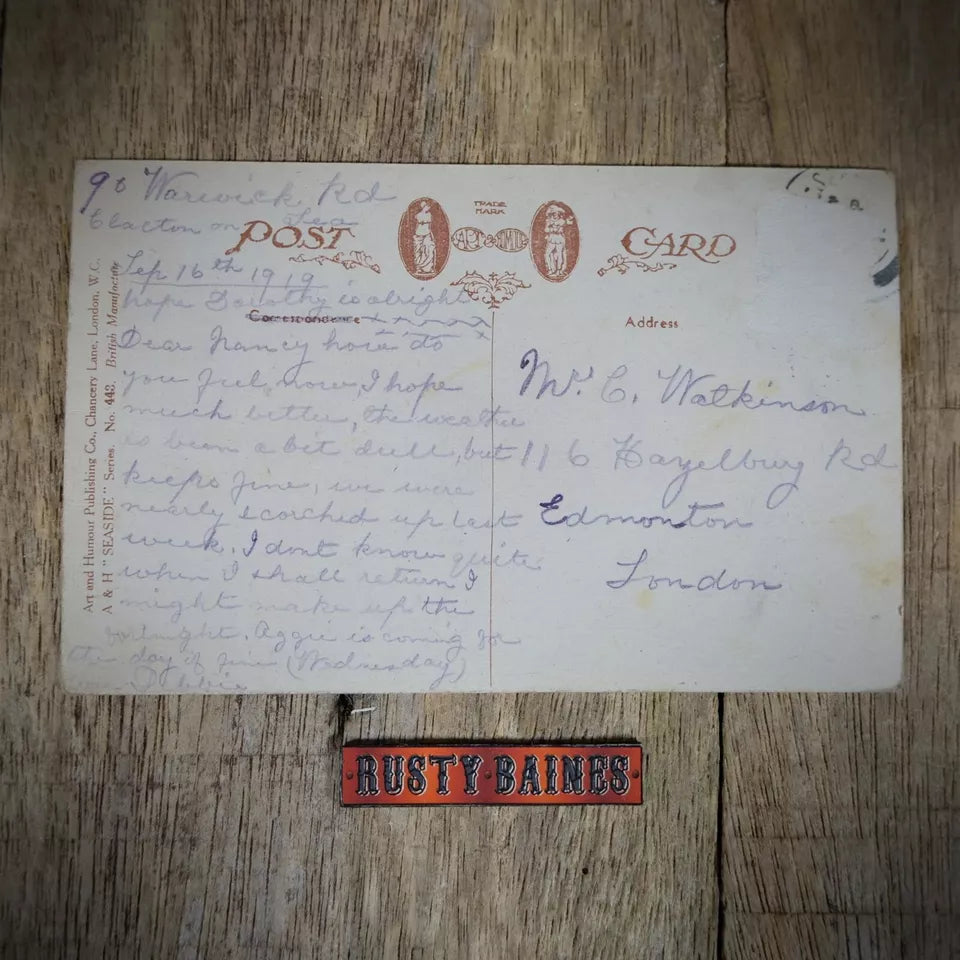 90 Warwick Rd
Clacton on Sea
Sep 16th 1919
hope Dorothy is alright
POST CARD
TRADE
MARK
ART & HUMOUR
Correspondence
Address
Dear Nancy how do
you feel, now, I hope
much better, the weather
is been a bit dull, but
keeps fine, we were
nearly scorched up last
week. I dont know quite
when I shall return I
might make up the
fortnight. Aggie is coming for
the day if fine (Wednesday)
C. Watkinson
116 Hazelbury Rd
Edmonton
London
Art and Humour Publishing Co., Chancery Lane, London, W.C.
A & H "SEASIDE" Series. No. 443. British Manufacture
RUSTY·BAINES